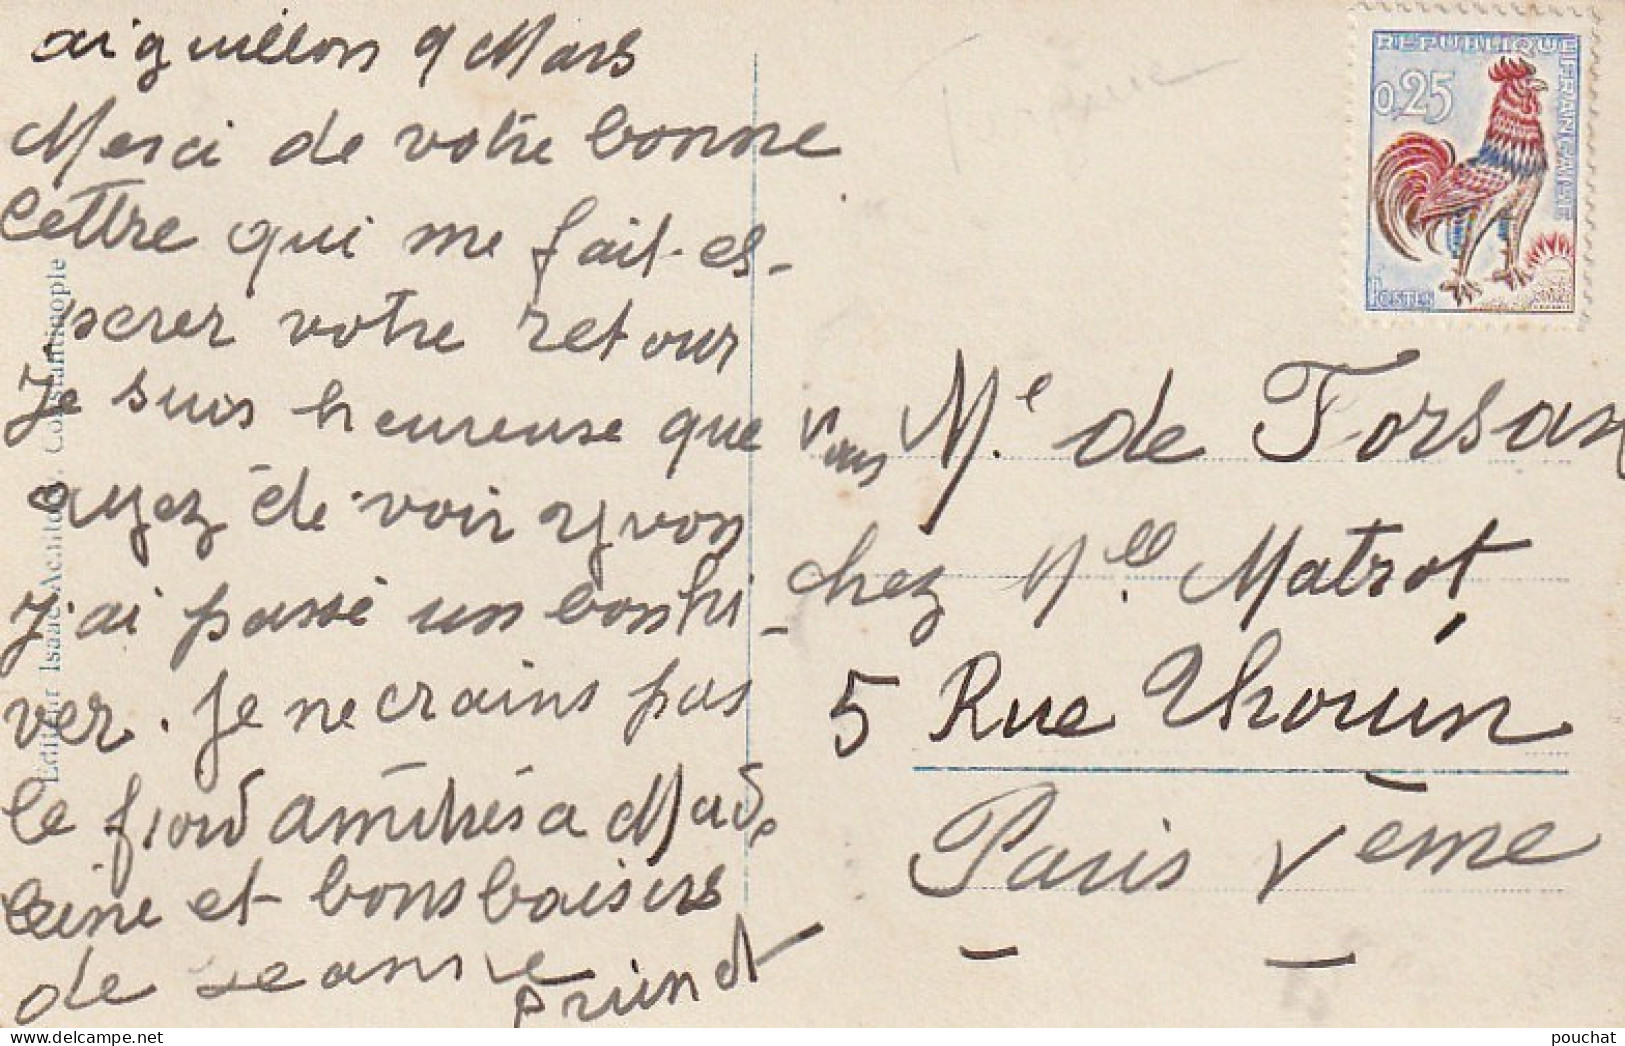 aiguillon 9 Mars
Merci de votre bonne
lettre qui me fait es-
perer votre retour
Je suis heureuse que vous
ayez été voir yvon
J'ai passé un bon hi-
ver. Je ne crains pas
le froid amitiés a Made
leine et bons baisers
de Jeanne
Editeur Isaac Constantinople
REPUBLIQUE FRANÇAISE
0,25
POSTES
Me. de Forsan
chez Mlle. Matrot
5 Rue Thouin
Paris Veme
pouchat